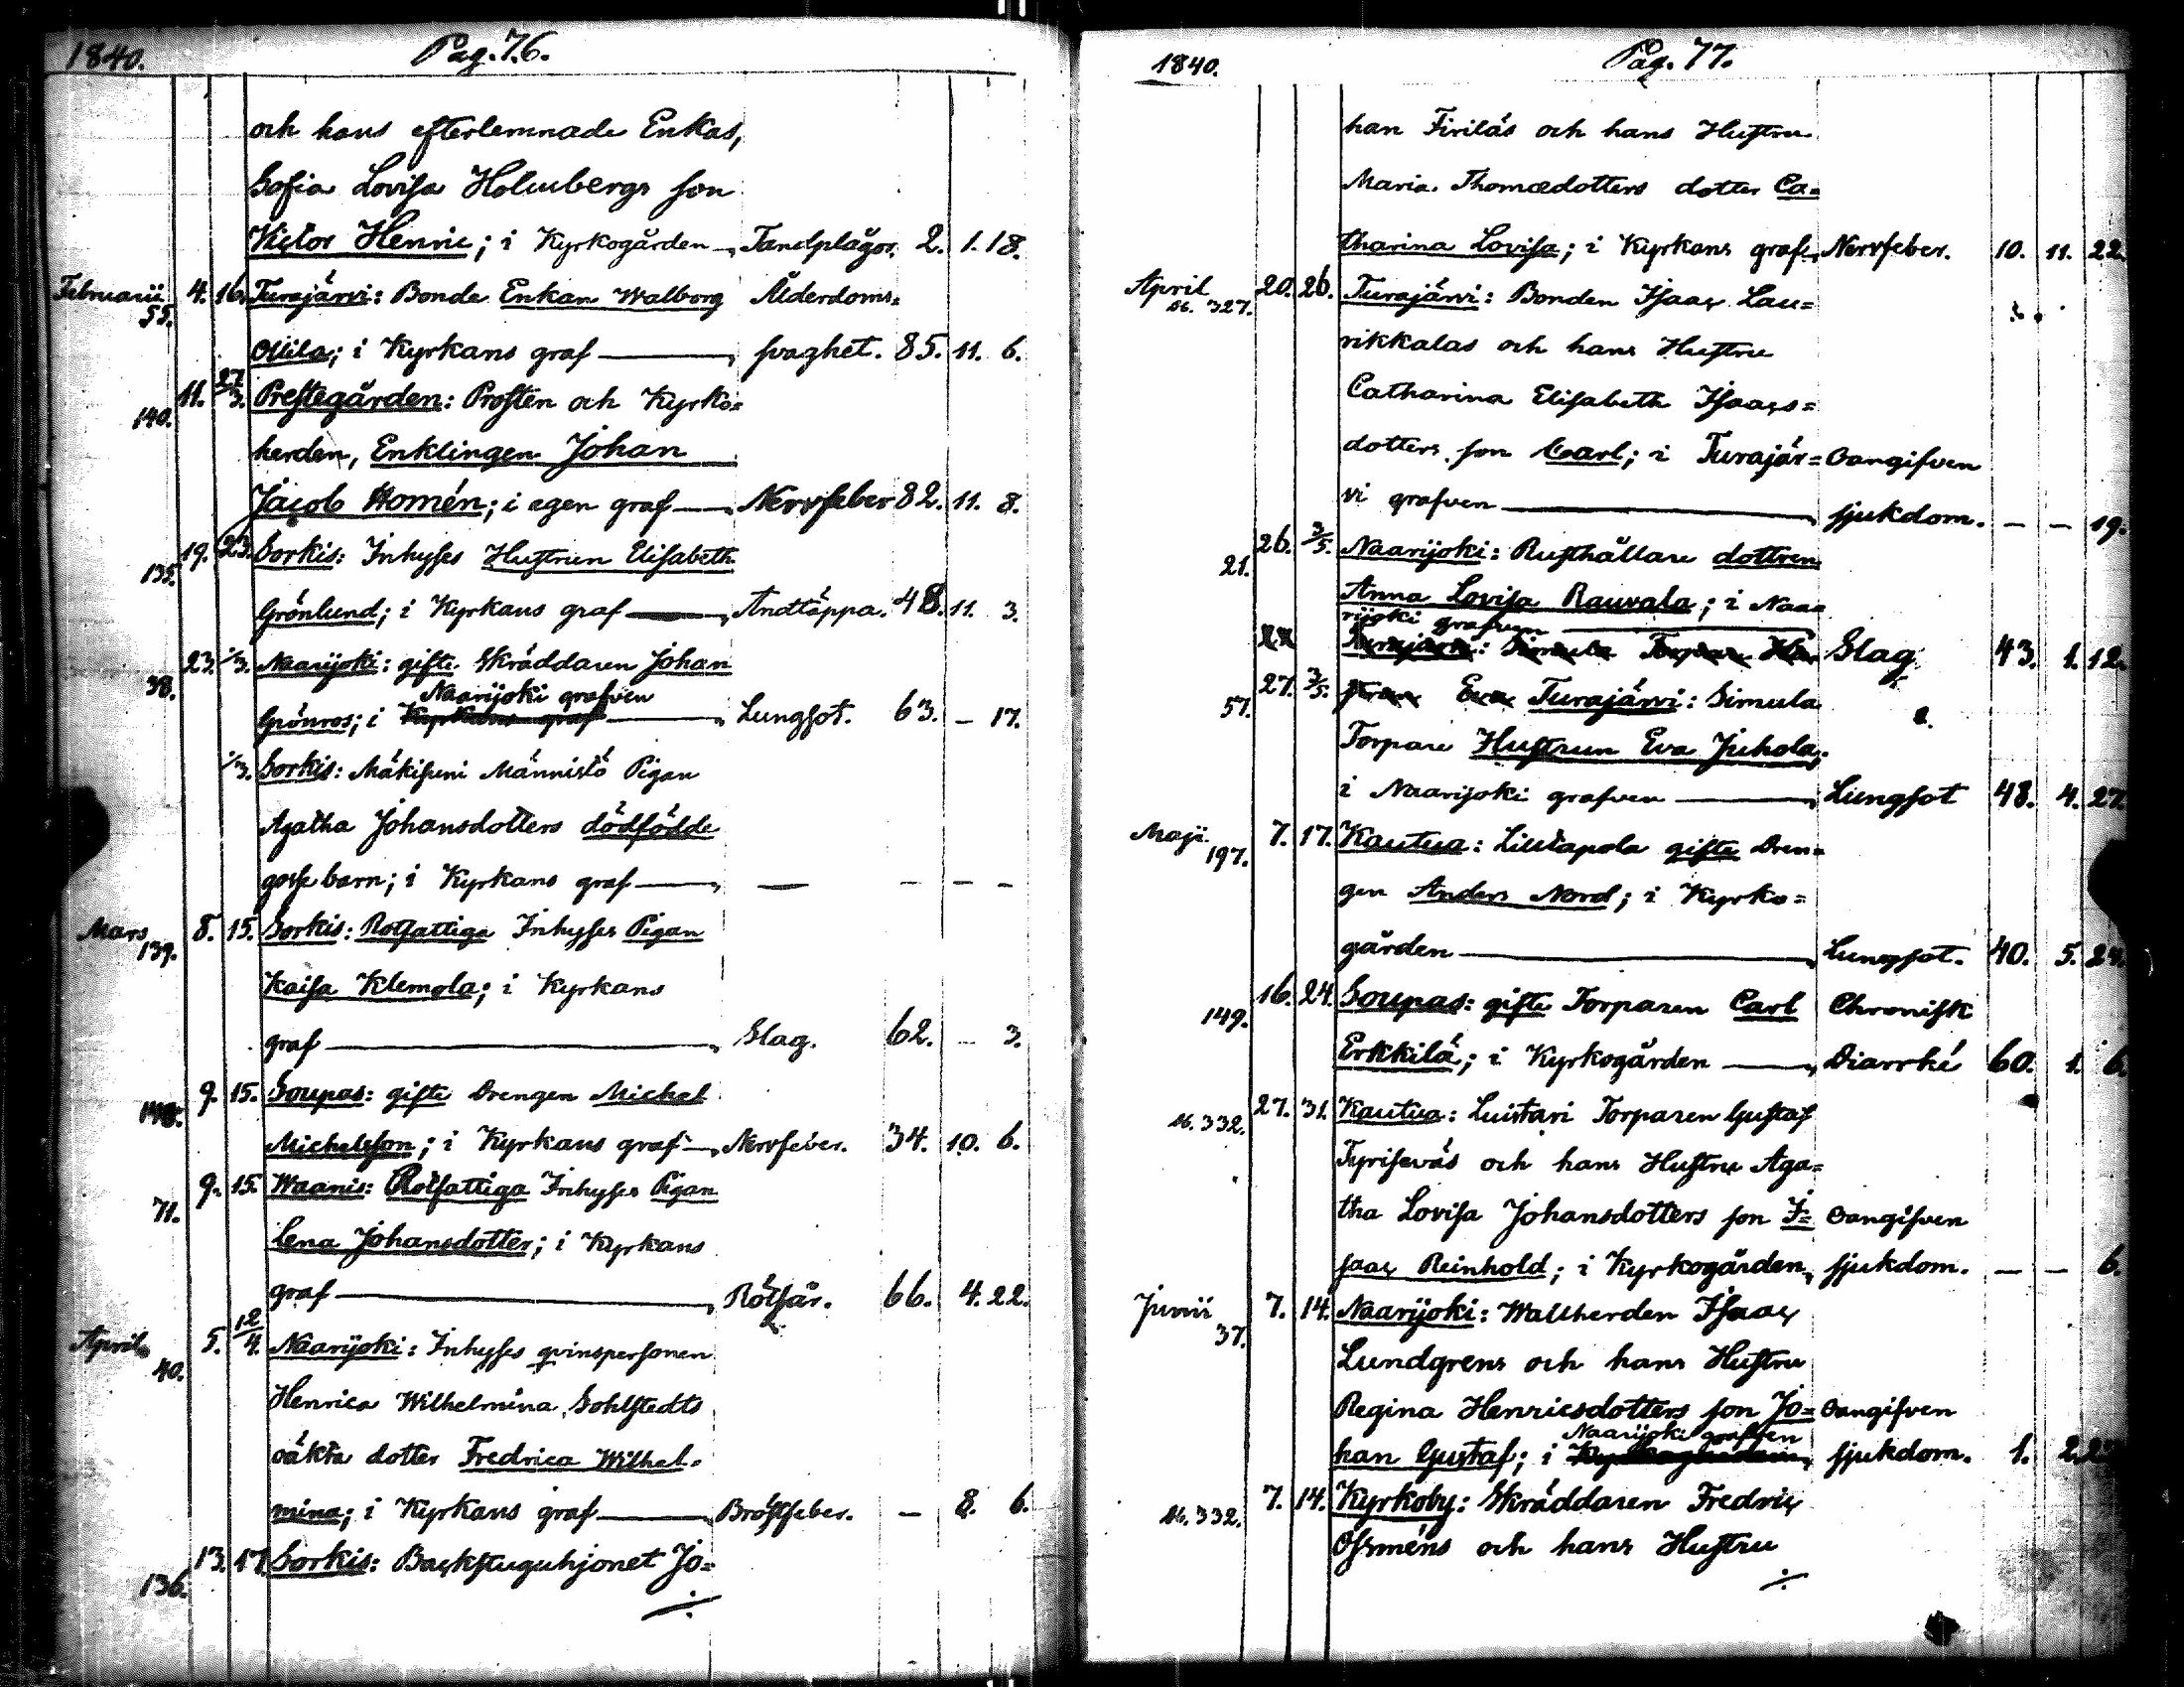 1840. Pag. 76.
och hans efterlemnade Enkas,
Sofia Lovisa Holmbergs son
Victor Henric; i Kyrkogården Tandplågor. 2. 1. 18.
Februarii 4. 16. Turajärvi: Bonde Enkan Walborg Ålderdoms=
55. Ollila; i Kyrkans graf svaghet. 85. 11. 6.
11. 27/3. Prestegården: Prosten och Kyrko=
140. herden, Enklingen Johan
Jacob Homén; i egen graf Nervfeber 82. 11. 8.
19. 23. Sorkis: Inhyses Hustrun Elisabeth
135. Grönlund; i Kyrkans graf Andtäppa. 48. 11. 3.
23. 1/3. Naarijoki: gifte Skräddaren Johan
38. Naarijoki grafven
Grönros; i Kyrkans graf Lungsot. 63. - 17.
1/3. Sorkis: Mäkisuni Männistö Pigan
Agatha Johansdotters dödfödde
gosse barn; i Kyrkans graf — - - -
Mars 8. 15. Sorkis: Rotfattiga Inhyses Pigan
139. Kaisa Klemola; i Kyrkans
graf Slag. 62. - 3.
9. 15. Soupas: gifte Drengen Michel
148. Michelsson; i Kyrkans graf Nervfeber. 34. 10. 6.
9. 15. Waanis: Rotfattiga Inhyses Pigan
71. Lena Johansdotter; i Kyrkans
graf Rötsår. 66. 4. 22.
April 5. 12/4. Naarijoki: Inhyses qvinspersonen
40. Henrica Wilhelmina Sohlstedts
oäkta dotter Fredrica Wilhel=
mina; i Kyrkans graf Bröstfeber. - 8. 6.
13. 17 Sorkis: Backstuguhjonet Jo=
136. ./.
1840. Pag. 77.
han Firiläs och hans Hustru
Maria Thomædotters dotter Ca=
tharina Lovisa; i Kyrkans graf Nervfeber. 10. 11. 22.
April 20. 26. Turajärvi: Bonden Isaac Lau=
327. rikkalas och hans Hustru
Catharina Elisabeth Isaacs=
dotters son Carl; i Turajär= Oangifven
vi grafven sjukdom. - - 19.
26. 3/5. Naarijoki: Rusthållare dottren
21. Anna Lovisa Rauvala; i Naa=
rijoki grafven
Turajärvi: Simula Torpare Hu Slag 43. 1. 12.
27. 3/5. strun Eva Turajärvi: Simula
57. Torpare Hustrun Eva Juhola;
i Naarijoki grafven Lungsot 48. 4. 27
Maji 7. 17. Kautua: Liutapola gifte Dren=
197. gen Anders Nord; i Kyrko=
gården Lungsot. 40. 5. 24.
16. 24. Soupas: gifte Torparen Carl Chronisk
149. Erkkilä; i Kyrkogården Diarrhé 60. 1. 6.
27. 31. Kautua: Luistari Torparen Gustaf
332. Tyriseväs och hans Hustru Aga=
tha Lovisa Johansdotters son I= Oangifven
saac Reinhold; i Kyrkogården, sjukdom. - - 6.
Junii 7. 14. Naarijoki: Wallherden Isaac
37. Lundgrens och hans Hustru
Regina Henricsdotters son Jo= Oangifven
Naarijoki grafven
han Gustaf; i Kyrkogården, sjukdom. 1. 2.
7. 14. Kyrkoby: Skräddaren Fredric
332. Öhrméns och hans Hustru
./.